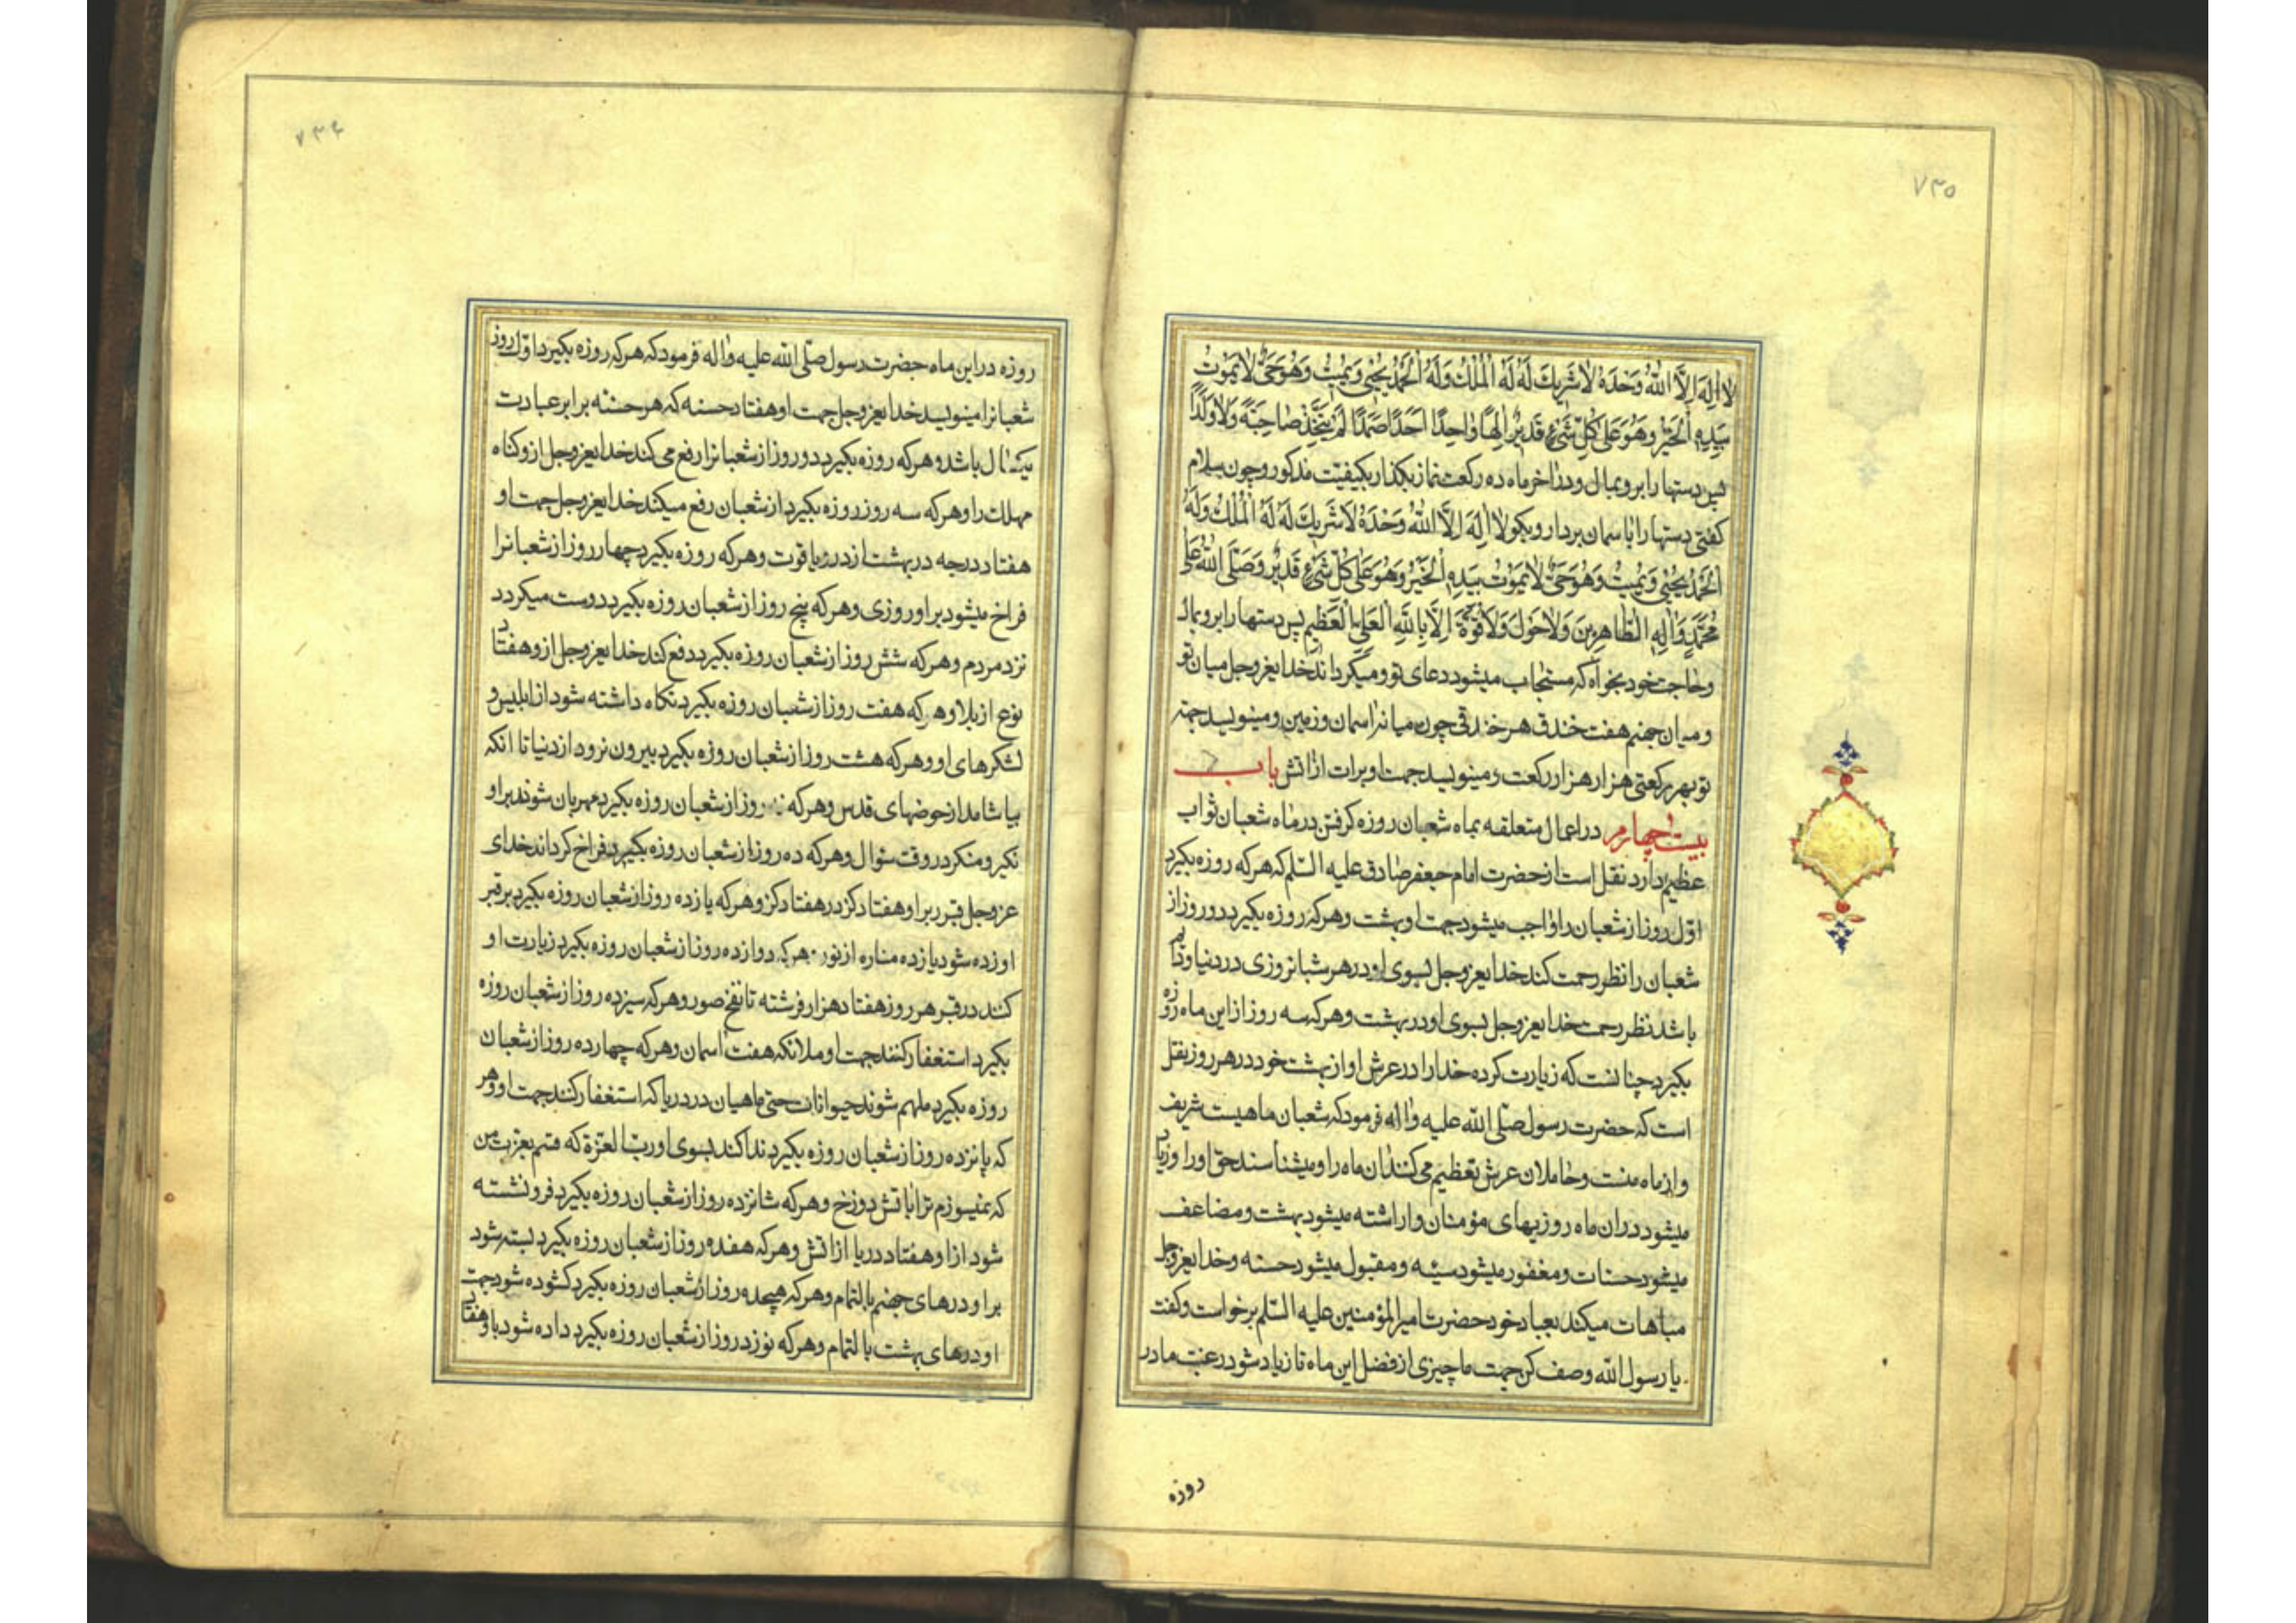 ۷۳۵
لا اِلٰهَ اِلَّا اللهُ وَحْدَهُ لاٰ شَرِيكَ لَهُ لَهُ الْمُلْكُ وَلَهُ الْحَمْدُ يُحْيِي وَيُمِيتُ وَهُوَ حَيٌّ لاٰ يَمُوتُ
بِيَدِهِ الْخَيْرُ وَهُوَ عَلىٰ كُلِّ شَيْءٍ قَدِيرٌ اِلٰهاً وٰاحِدًا اَحَدًا صَمَدًا لَمْ يَتَّخِذْ صٰاحِبَةً وَلاٰ وَلَدًا
پس دستها را برو بمال و در اٰخر ماه ده رکعت نماز بکذار بکیفیّت مذکور و چون سلام
کفتی دستها را باسمان بردار و بکو لاٰ اِلٰهَ اِلَّا اللهُ وَحْدَهُ لاٰ شَرِيكَ لَهُ لَهُ الْمُلْكُ وَلَهُ
الْحَمْدُ يُحْيِي وَيُمِيتُ وَهُوَ حَيٌّ لاٰ يَمُوتُ بِيَدِهِ الْخَيْرُ وَهُوَ عَلىٰ كُلِّ شَيْءٍ قَدِيرٌ وَصَلَّى اللهُ عَلىٰ
مُحَمَّدٍ وَاٰلِهِ الطّٰاهِرِينَ وَلاٰ حَوْلَ وَلاٰ قُوَّةَ اِلَّا بِاللهِ الْعَلِيِّ الْعَظِيمِ پس دستها را برو بمال
و حاجت خود بخواه که مستجاب میشود دعای تو و میکرداند خدایعزوجل میان تو
و میان جهنم هفت خندق هر خندقی چون میانه اسمان و زمین و مینویسد جهة
تو بهر رکعتی هزار هزار رکعت و مینویسد جهت او برات از اتش باب
بیست چهارم در اعمال متعلقه بماه شعبان روزه کرفتن در ماه شعبان ثواب
عظیم دارد نقل است از حضرت امام جعفر صادق علیه السّلم که هر که روزه بکیرد
اوّل روز از شعبان را واجب میشود جهت او بهشت و هر که روزه بکیرد دو روز از
شعبان را نظر رحمت کند خدایعزوجل بسوی او در هر شبانروزی در دنیا و دائم
باشد نظر رحمت خدایعزوجل بسوی او در بهشت و هر که سه روز از این ماه روزه
بکیرد چنانست که زیارت کرده خدا را در عرش او از بهشت خود در هر روز نقل
است که حضرت رسول صلّی الله علیه واٰله فرمود که شعبان ماهیست شریف
و از ماه منست و حاملان عرش تعظیم می کنند ان ماه را و میشناسند حق او را و زیاد
میشود در ان ماه روزیهای مؤمنان و اراسته میشود بهشت و مضاعف
میشود حسنات و مغفور میشود سیّئه و مقبول میشود حسنه و خدایعزوجل
مباهات میکند بعباد خود حضرت امیرالمؤمنین علیه السّلم برخواست و کفت
یا رسول الله وصف کن جهت ما چیزی از فضل این ماه تا زیاد شود رغبت ما در
روزه
۷۳۶
روزه در این ماه حضرت رسول صلّی الله علیه واٰله فرمود که هر که روزه بکیرد اوّل روز
شعبانرا مینویسد خدایعزوجل جهت او هفتاد حسنه که هر حسنه برابر عبادت
یکسال باشد و هر که روزه بکیرد دو روز از شعبانرا رفع می کند خدایعزوجل ازو کناه
مهلک را و هر که سه روز روزه بکیرد از شعبان رفع میکند خدایعزوجل جهت او
هفتاد درجه در بهشت از در و یاقوت و هر که روزه بکیرد چهار روز از شعبانرا
فراخ میشود بر او روزی و هر که پنج روز از شعبان روزه بکیرد دوست میکردد
نزد مردم و هر که شش روز از شعبان روزه بکیرد دفع کند خدایعزوجل ازو هفتاد
نوع از بلا و هر که هفت روز از شعبان روزه بکیرد نکاه داشته شود از ابلیس و
لشکرهای او و هر که هشت روز از شعبان روزه بکیرد بیرون نرود از دنیا تا انکه
بیاشامد از حوضهای قدس و هر که نه روز از شعبان روزه بکیرد مهربان شوند بر او
نکیر و منکر در وقت سئوال و هر که ده روز از شعبان روزه بکیرد فراخ کرداند خدای
عزوجل قبر بر او هفتاد کز در هفتاد کز و هر که یازده روز از شعبان روزه بکیرد بر قبر
او زده شود یازده مناره از نور و هر که دوازده روز از شعبان روزه بکیرد زیارت او
کنند در قبر هر روز هفتاد هزار فرشته تا نفخ صور و هر که سیزده روز از شعبان روزه
بکیرد استغفار کنند جهت او ملائکه هفت اسمان و هر که چهارده روز از شعبان
روزه بکیرد ملهم شوند حیوانات حتی ماهیان در دریا که استغفار کنند جهت او و هر
که پانزده روز از شعبان روزه بکیرد ندا کند بسوی او ربّ العزّة که قسم بعزت من
که نمیسوزم ترا باتش دوزخ و هر که شانزده روز از شعبان روزه بکیرد فرو نشسته
شود از او هفتاد دریا از اتش و هر که هفده روز از شعبان روزه بکیرد بسته شود
بر او درهای جهنم بالتمام و هر که هیجده روز از شعبان روزه بکیرد کشوده شود جهت
او درهای بهشت بالتمام و هر که نوزده روز از شعبان روزه بکیرد داده شود باو هفتاد